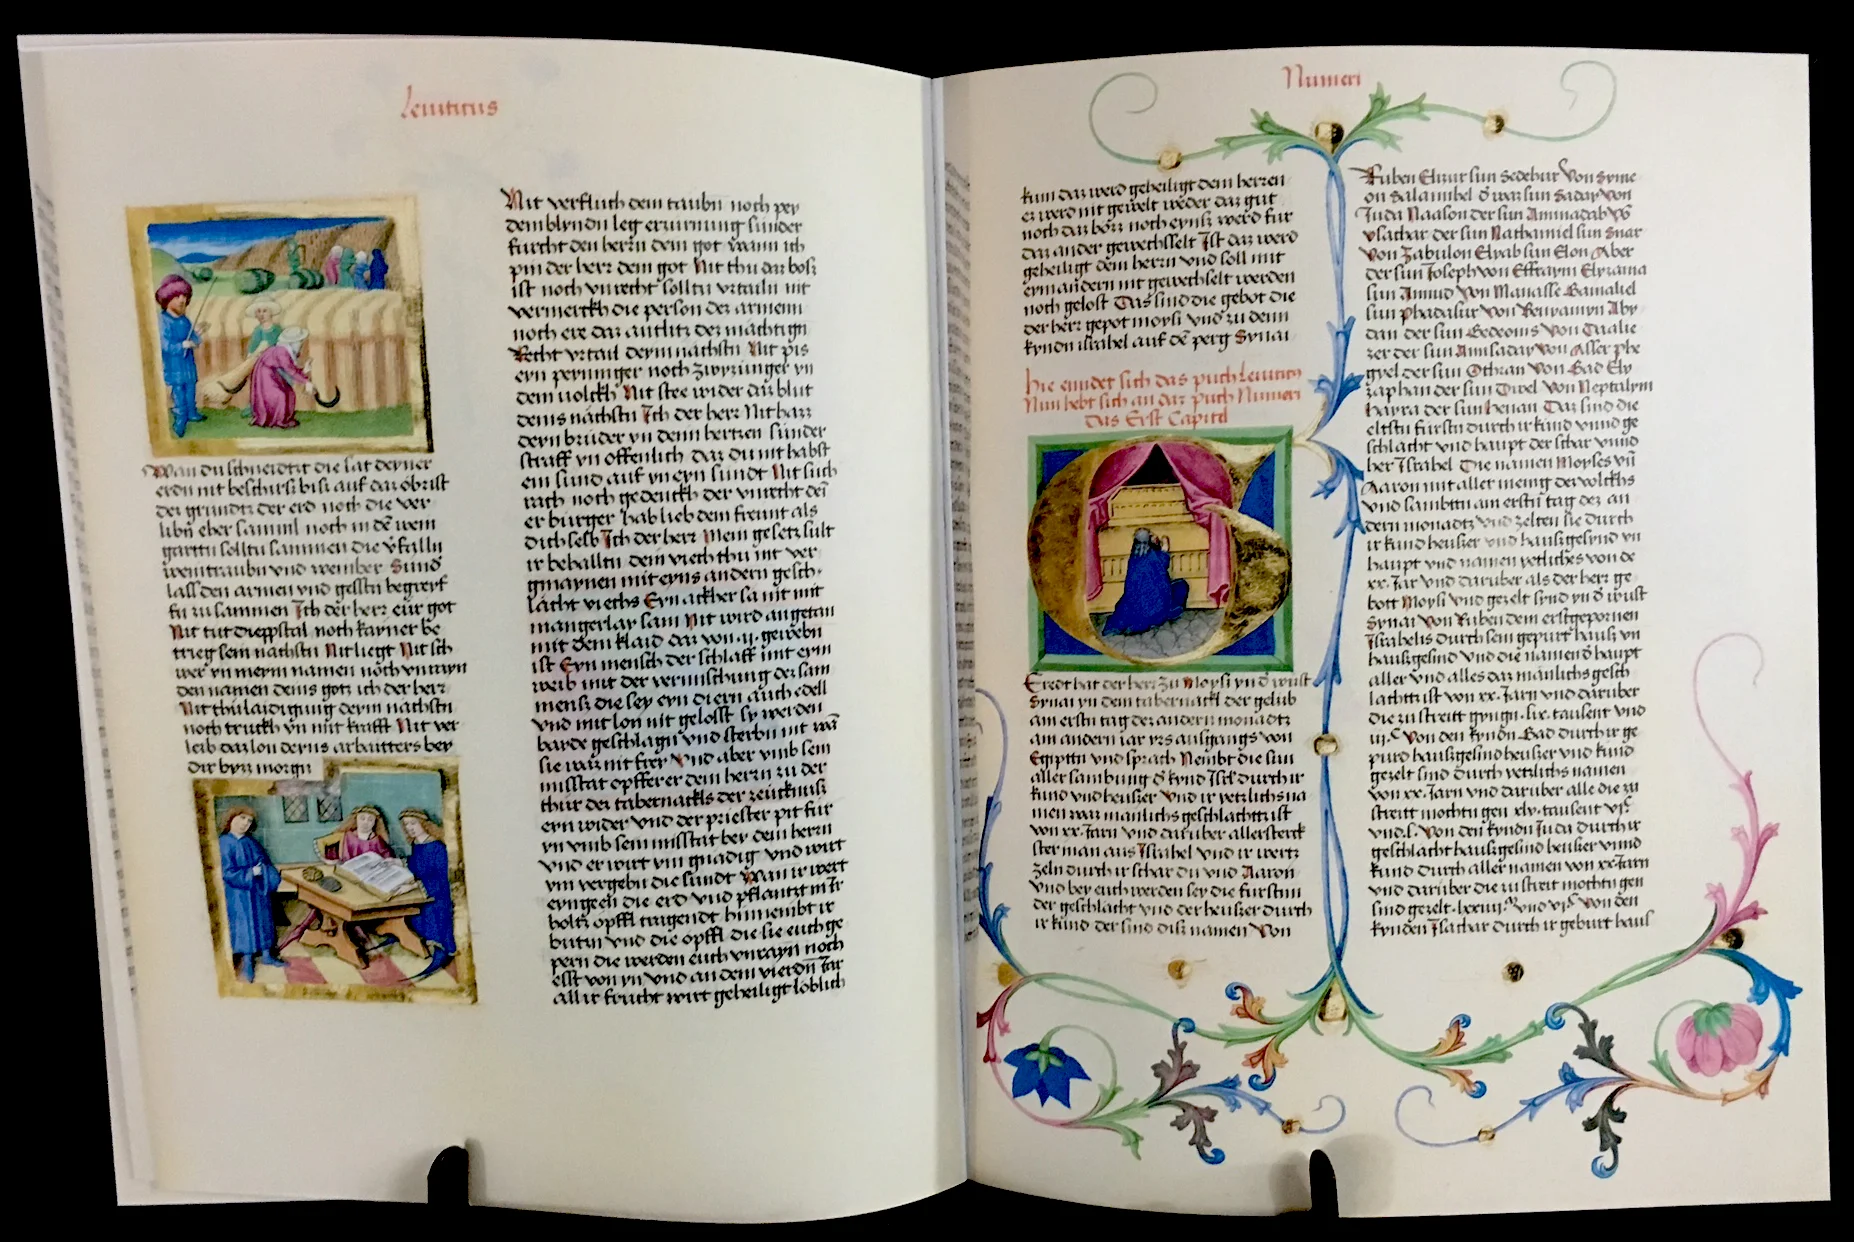 Leuiticus
Wan du schneidtzt die sat deyner
erdn nit beschirst bisz auf daz obrist
der grundtz der erd noch die ver
libn eher samml noch in dē wein
gartn solltu sammen die v̄falln
weintraubn vnd weinber Sund
lasz den armen vnd gesstn begreyf
fn zu sammen Ich der herr eür got
Nit tut dieppstal noch kayner be
trieg sein nachstn Nit liegt Nit sch
wer yn meym namen noch vnrayn
den namen deins gotz ich der herr
Nit thu laidigung deym nachstn
noch truckh yn mit krafft Nit ver
leib daz lon deyns arbaitters bey
dir byz morgn
Nit verfluch dem taubn noch pey
dem blyndn leg erzurnung sunder
furcht den herrn dem got wann ich
pin der herr dem got Nit thu daz bosz
ist noch vnrecht solltu vrtailn nit
vermerckh die person dez armenn
noch ere daz antlitz dez machtign
Recht vrtail deym nachstn Nit pis
eyn peyniger noch zwyzunger yn
dem uolckh Nit stee wider daz blut
deins nachstn Ich der herr Nit hazz
deyn bruder yn denn hertzen sunder
straff yn offenlich daz du nit habst
ein sund auf yn eyn sundt Nit such
rach noch gedenckh der vnrecht dein
er burger hab lieb dem freunt als
dich selb Ich der herr Mein gesetz sult
ir behalltn dein viech thu nit ver
gmaynen mit eyns andern gesch
lächt viechs Eyn ackher sa nit mit
mangerlay sam Nit wird angetan
mit dem klaid daz von ii gewebn
ist Eyn mensch der schlaff mit eym
weib mit der vermischung dez sam
mensz die sey eyn diern auch edell
vnd mit lon nit gelosst sy werden
barde geschlagn vnd sterbn nit wā
sie waz nit frey Vnd aber vmb sein
misstat opffer er dem herrn zu der
thür dez tabernackls der zeücknusz
eyn wider vnd der priester pit für
yn vmb sein misstat bey dem herrn
vnd er wirt ym gnadig vnd wirt
ym vergebn die sundt Wan ir wert
eyngeen die erd vnd pflantzt in Ir
holtz opffl tragendt hinnembt ir
butzn vnd die opffl die sie euch ge
pern die werden euch vnrayn noch
esst von yn vnd an dem vierdn Iar
all ir frucht wirt geheiligt loblich
Numeri
kum daz werd geheiligt dem herren
ez werd nit gewelt weder daz gut
noch daz bösz noch eynsz werd fur
daz ander gewechsselt Ist daz werd
geheiligt dem herrn vnd soll mit
eym andern nit gewechselt werden
noch gelost Das sind die gebot die
der herr gepot moysi vnd zu denn
kyndn israhel auf dē perg Synai
Hie enndet sich das puch Leuiticy
Nun hebt sich an daz puch Numeri
das Erst Capitel
Eredt hat der herr zu Moysi yn d wüst
Synai yn dem tabernackl der gelub
am erstn tag dez andern monadtz
am andern iar yrs ausgangs von
Egipttn vnd sprach Nembt die sun
aller sambung d kynd Isrl durch ir
kund vnd heüszer vnd ir yetzlichs na
men waz manlichs geschlachts ist
von xx Iarn vnd daruber aller sterck
ster man aus Israhel vnd ir wertz
zeln durch ir schar du vnd Aaron
Vnd bey euch werden sey die furstnn
der geschlacht vnd der heuszer durch
ir kund der sind disz namen Von
Ruben Elizur sun Sedehur Von Syme
on Salamihel d waz sun Sadar Von
Juda Naason der sun Aminadab Vō
ysachar der sun Nathaniel sun Suar
Von Zabulon Elyab sun Elon Aber
der sun Joseph von Effraym Elyzama
sun Amiud Von Manasse Gamaliel
sun phadasur Von Benyamyn Aby
dan der sun Gedeonis Von Daalie
zer der sun Amisaday Von Asser phe
gyel der sun Othran Von Gad Ely
zaphan der sun Duel Von Neptalym
hayra der sun henan Daz sind die
eltstn fürstn durch ir kund vnnd ge
schlacht vnd haupt der schar vnnd
her Israhel Die namen Moyses vn̄
Aaron mit aller menig dez volckhs
vnd sambttn am erstn tag dez an
dern monadtz vnd zelten sie durch
ir kund heuszer vnd hauszgesynd yn
haupt vnd namen yetliches von de
xx Jar vnd daruber als der herr ge
bott Moysi vnd gezelt synd yn d wüst
Synai von Ruben dem erstgepornen
Israhelis durch sein gepurt hausz yn
hauszgesind vnd die namen d haupt
aller vnd alles daz manlichs gesch
lachtz ist von xx Jarn vnd daruber
die zu streitt gyngn lix tausent vnd
iii c Von den kyndn Gad durch ir ge
purd hauszgesind heuszer vnd kund
gezelt sind durch yetzlichs namen
von xx Jarn vnd daruber alle die zu
streitt mochtn gen xlv tausent vi c
vnd l Von den kyndn Juda durch ir
geschlacht hauszgesind heuszer vnnd
kund durch aller namen von xx Jarn
vnd darüber die zu streit mochtn gen
sind gezelt lxxiiii m vnd vi c Von den
kynden Isachar durch ir geburt hausz